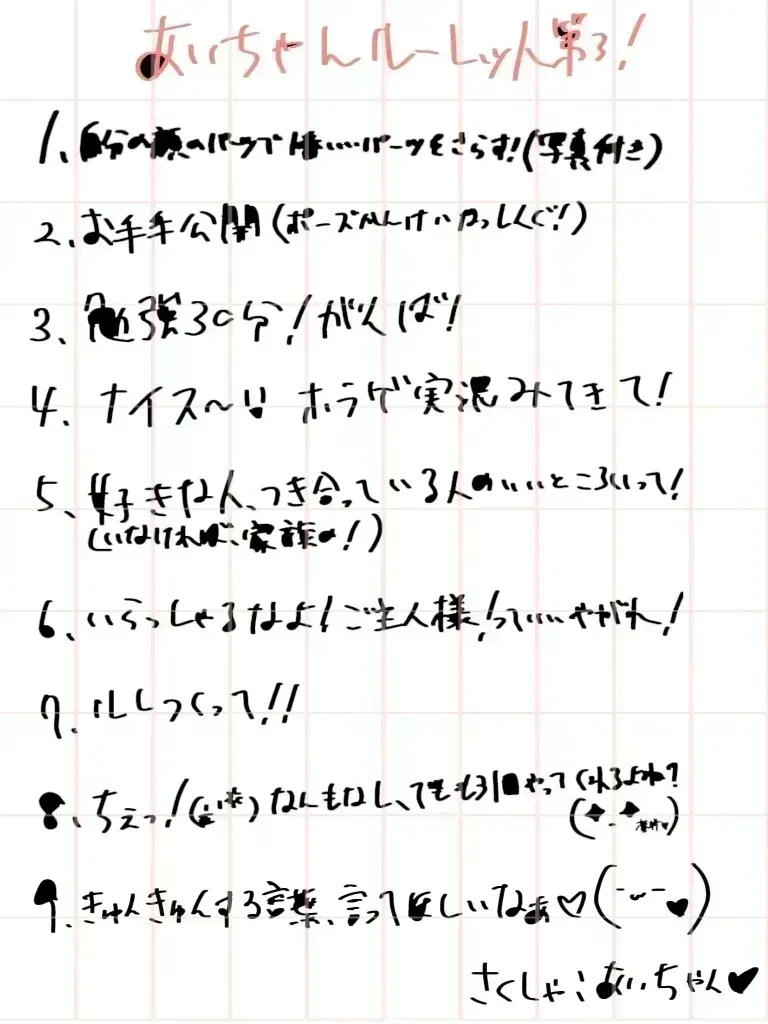 あいちゃんルーレット第3!
1、自分の顔のパーツで 1番いいパーツをさらす!(写真付き)
2、お手手公開(ポーズかんけいなっしんぐ!)
3、勉強30分!がんば!
4、ナイス〜!! ホラゲ実況みてきて!
5、好きな人、つき合っている人のいいところいって!
(いなければ、家族の!)
6、いらっしゃるなよ!ご主人様!っていいやがれ!
7、ルレつくって!!
8、ちぇっ! なんもなし、でももう1回やってくれるよね?
9、きゅんきゅんする言葉、言ってほしいなぁ♡(˘ᵕ˘♥)
さくしゃ:あいちゃん♥